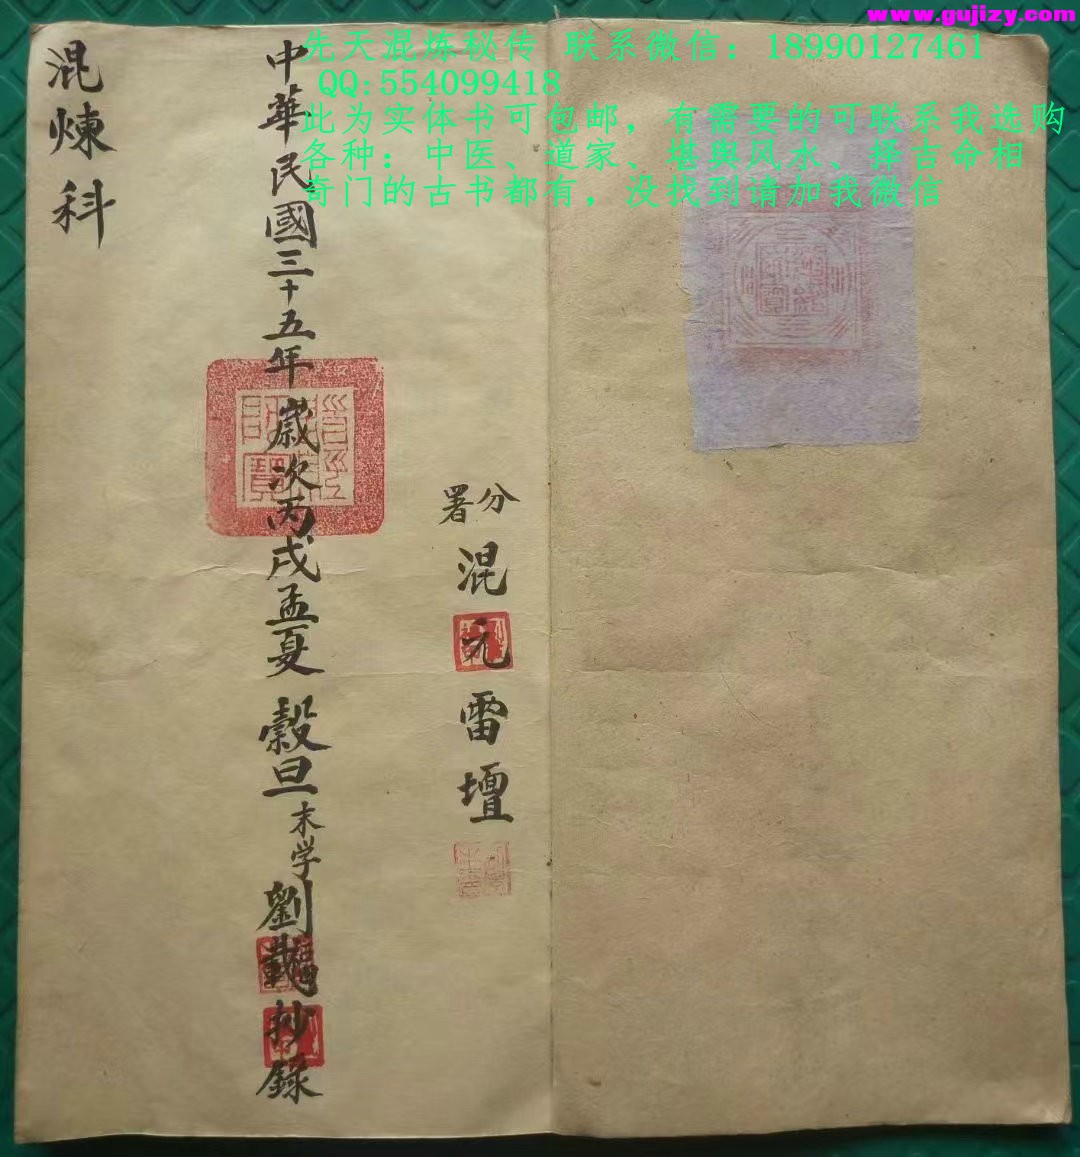 www.gujizy.com
先天混炼秘传 联系微信：18990127461
QQ:554099418
此为实体书可包邮，有需要的可联系我选购
各种：中医、道家、堪舆风水、择吉命相
奇门的古书都有，没找到请加我微信
分署
混元雷壇
中華民國三十五年歲次丙戌孟夏穀旦末学劉
抄錄
混煉科